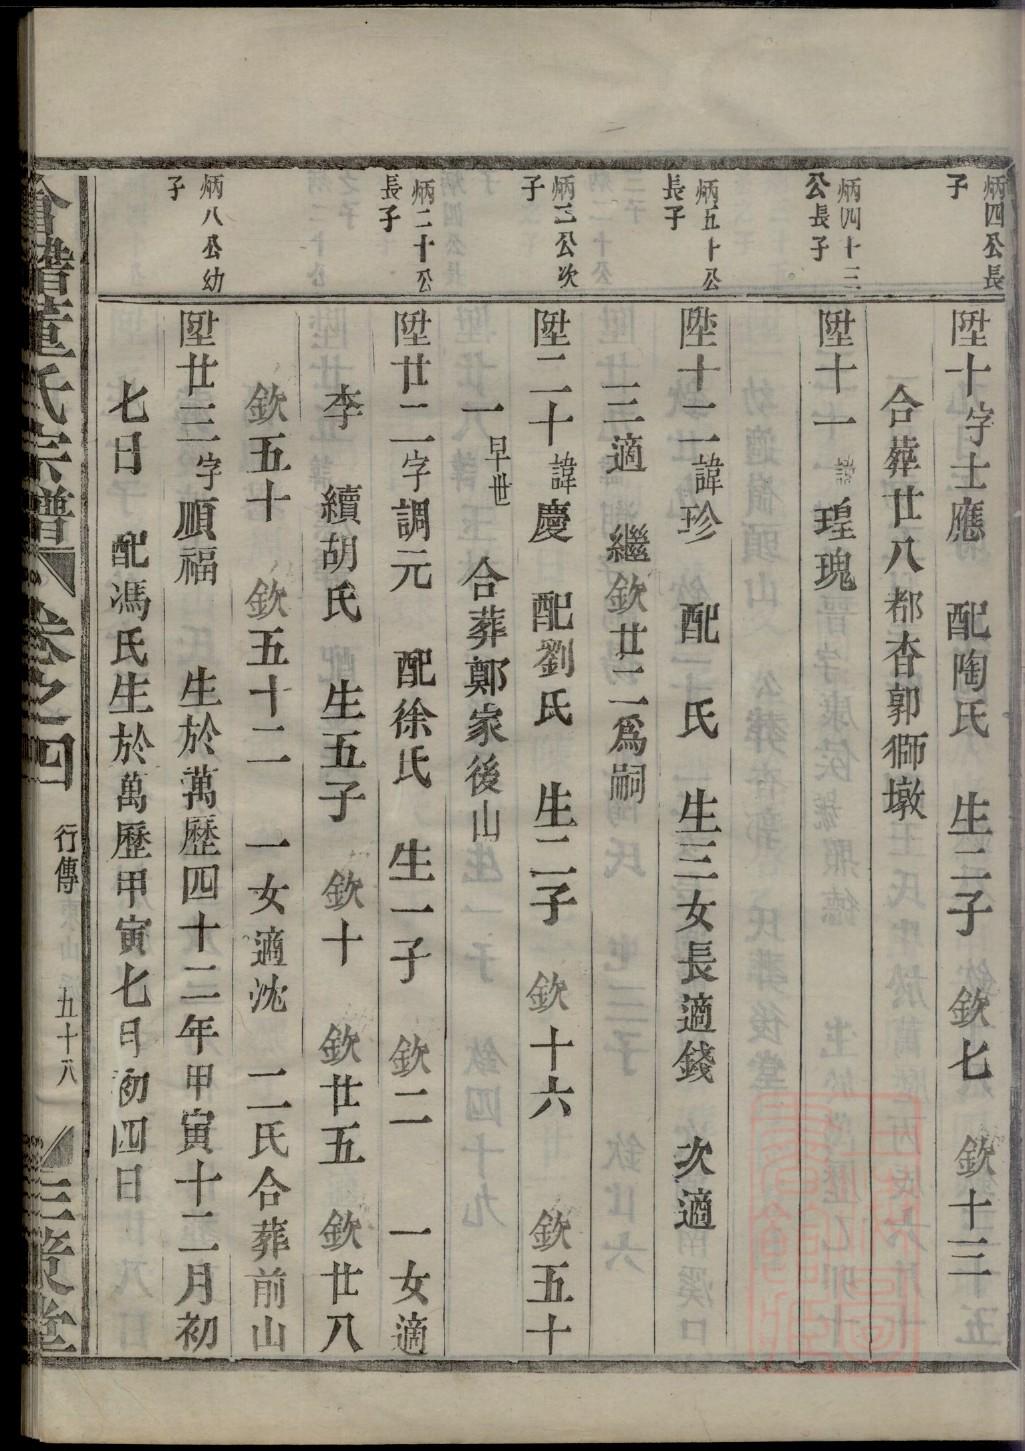 炳四公長
子
陞十字士應 配陶氏 生二子 欽七 欽十三
合葬廿八都杏郭獅墩
炳四十三
公長子
陞十一諱瑝瑰
炳五十公
長子
陞十二諱珍 配 氏 生三女長適錢 次適
三適 繼欽廿二爲嗣
炳三公次
子
陞二十諱慶 配劉氏 生二子 欽十六 欽五十
一早世 合葬鄭家後山
炳二十公
長子
陞廿二字調元 配徐氏 生一子 欽二 一女適
李 續胡氏 生五子 欽十 欽廿五 欽廿八
欽五十 欽五十二 一女適沈 二氏合葬前山
炳八公幼
子
陞廿三字順福 生於萬歷四十二年甲寅十二月初
七日 配馮氏生於萬歷甲寅七月初四日
會稽董氏宗譜 卷之四 行傳 五十八 三策堂